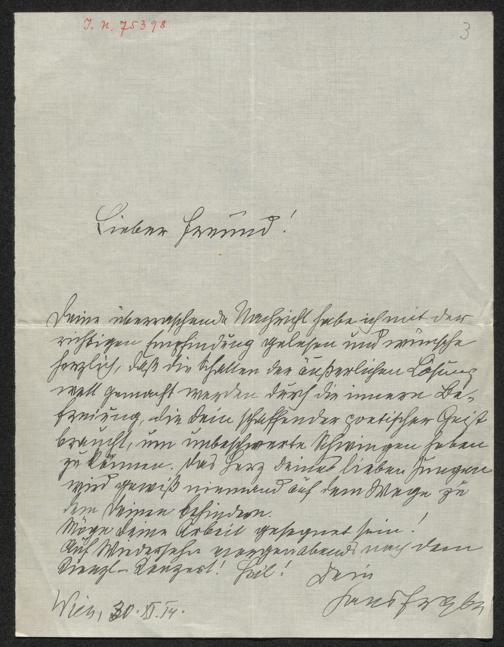 J. N. 75398
3
Lieber Freund!
Deine überraschende Nachricht habe ich mit der
richtigen Empfindung gelesen und wünsche
herzlich, daß die Schatten der äußerlichen Lösung
wett gemacht werden durch die innere Be-
freiung, die dein schaffender poetischer Geist
braucht, um unbeschwerte Schwingen heben
zu können. Das Herz deines lieben Jungen
wird gewiß niemand auf dem Wege zu
dem Deinen behindern.
Möge deine Arbeit gesegnet sein!
Auf Wiedersehn morgen abends nach dem
Kienzl-Konzert! Heil! Dein
Wien, 30. XI. 14.